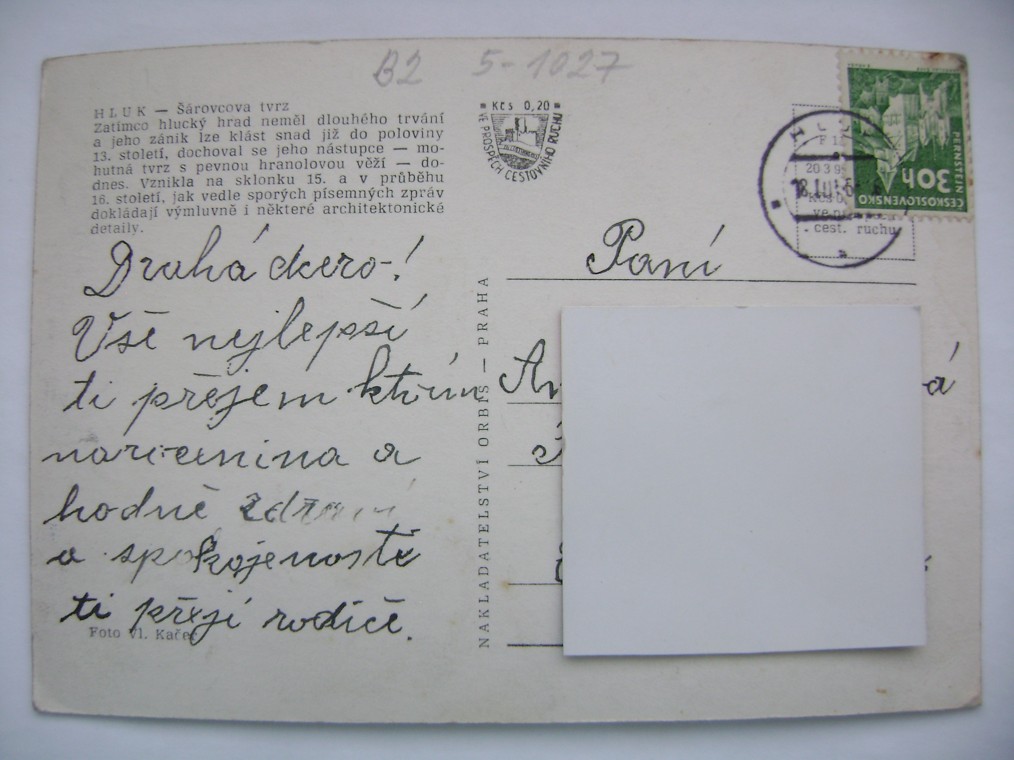 B2 5-1027
HLUK — Šárovcova tvrz
Zatímco hlucký hrad neměl dlouhého trvání
a jeho zánik lze klást snad již do poloviny
13. století, dochoval se jeho nástupce — mo-
hutná tvrz s pevnou hranolovou věží — do-
dnes. Vznikla na sklonku 15. a v průběhu
16. století, jak vedle sporých písemných zpráv
dokládají výmluvně i některé architektonické
detaily.
Kčs 0,20
VE PROSPĚCH CESTOVNÍHO RUCHU
20 3 9
cest. ruchu
30h
ČESKOSLOVENSKO
PERNŠTEJN
Drahá dcero!
Vše nejlepší
ti přejem ktvím
narozenina a
hodně zdraví
a spokojenosti
ti přejí rodiče.
Foto Vl. Kačer
NAKLADATELSTVÍ ORBIS — PRAHA
Paní
An á